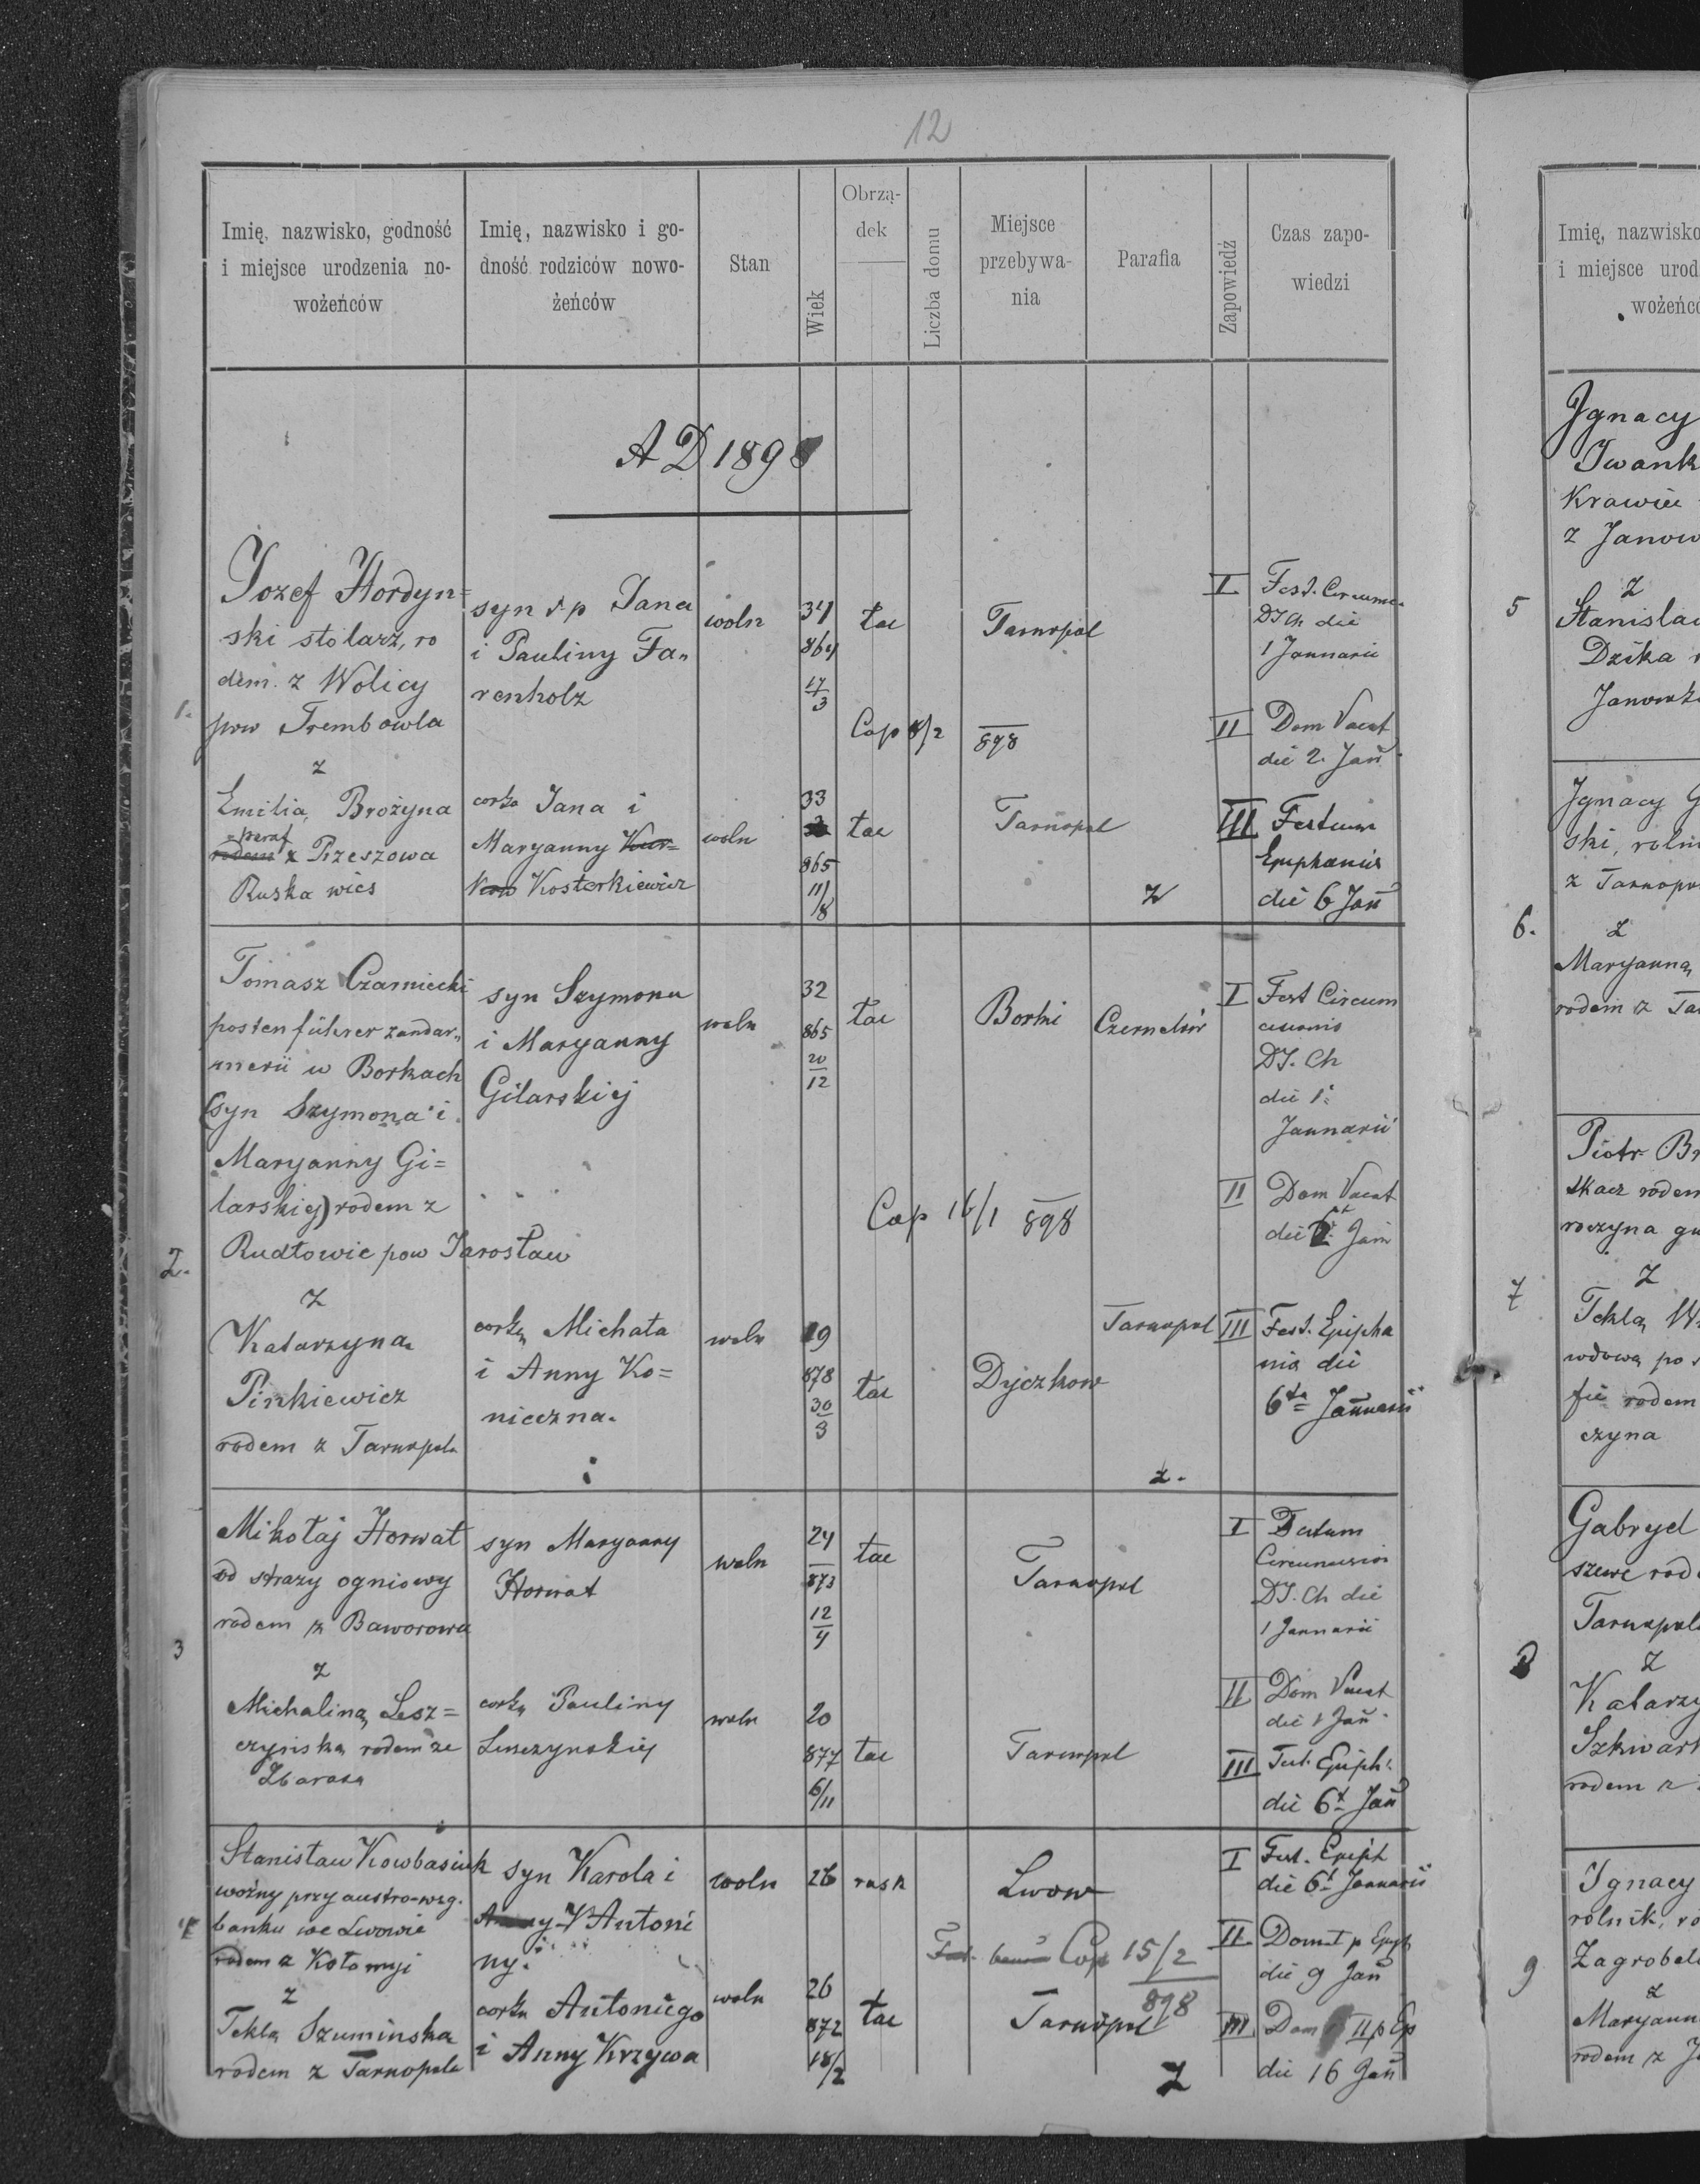 12
Imię, nazwisko, godność
i miejsce urodzenia no-
wożeńców
Imię, nazwisko i go-
dność rodziców nowo-
żeńców
Stan
Wiek
Obrzą-
dek
Liczba domu
Miejsce
przebywa-
nia
Parafia
Zapowiedź
Czas zapo-
wiedzi
A D 1898
1.
Jozef Hordyn=
ski stolarz, ro
dem. z Wolicy
pow Trembowla
z
Emilia, Brożyna
z Rzeszowa
Ruska wieś
syn ś p Jana
i Pauliny Fa„
renholz
corka Jana i
Maryanny Kur=
Kosterkiewicz
woln
woln
34
864
17
3
33
865
11/8
łac
Cap 8/2 898
łac
Tarnopol
Tarnopol
z
I Fest. Circumc.
DJCh die
1 Januarii
II Dom Vacat
die 2. Jan
III Festum
Epiphaniis
die 6 Jan
2.
Tomasz Czarniecki
postenführer żandar„
merii w Borkach
(syn Szymona i
Maryanny Gi=
larskiej) rodem z
Rudłowic pow Jarosław
z
Katarzyna
Pinkiewicz
rodem z Tarnopola
syn Szymona
i Maryanny
Gilarskiej
corka Michała
i Anny Ko=
nieczna.
woln
woln
32
865
20
12
19
878
30
3
łac
Cap 16/1 898
łac
Borki
Dyczkow
Tarnopol
z.
I Fest Circum
cisionis
DJ. Ch
die 1.
Januarii
II Dom Vacat
die 2 Jan
III Fest. Epipha
nia die
6ta Januarii
3
Mikołaj Horwat
od straży ogniowy
rodem z Baworowa
z
Michalina Lesz=
czyńska rodem ze
Zbaraża
syn Maryanny
Horwat
corka Pauliny
Leszczynskiej
woln
woln
24
873
12
4
20
877
6/11
łac
łac
Tarnopol
Tarnopol
I
Circumcisionis
DJ. Ch die
1 Januarii
II Dom Vacat
die Jan
III Fest. Epiph.
die 6t Jan
4
Stanisław Kowbasiuk
woźny przy austro-węg.
banku we Lwowie
rodem z Kołomyji
z
Tekla Szuminska
rodem z Tarnopola
syn Karola i
Antoni
ny.
corka Antoniego
i Anny Krzywa
woln
woln
26
26
872
18/2
rusk
łac
Lwow
Cop 15/2
898
Tarnopol
z
I Fest. Epiph
die 6t Januarii
II Dom I p Epiph
die 9 Jan
III Dom II p Ep
die 16 Jan
Imię, nazwisko
i miejsce urod
wożeńcó
Ignacy
Iwank
Krawiec
z Janow
z
5
Stanislaw
Dzika
Janowk
Ignacy G
ski, rolni
z Tarnopo
6.
z
Maryanna,
rodem z Ta
Piotr Br
rodem
z
7
Tekla,
wdowa po
rodem
czyna
Gabryel
szewc rod
Tarnopol
8
z
Katarzy
Szkwar
rodem z
Ignacy
rolnik, ro
Zagrobel
9
z
Maryann
rodem z